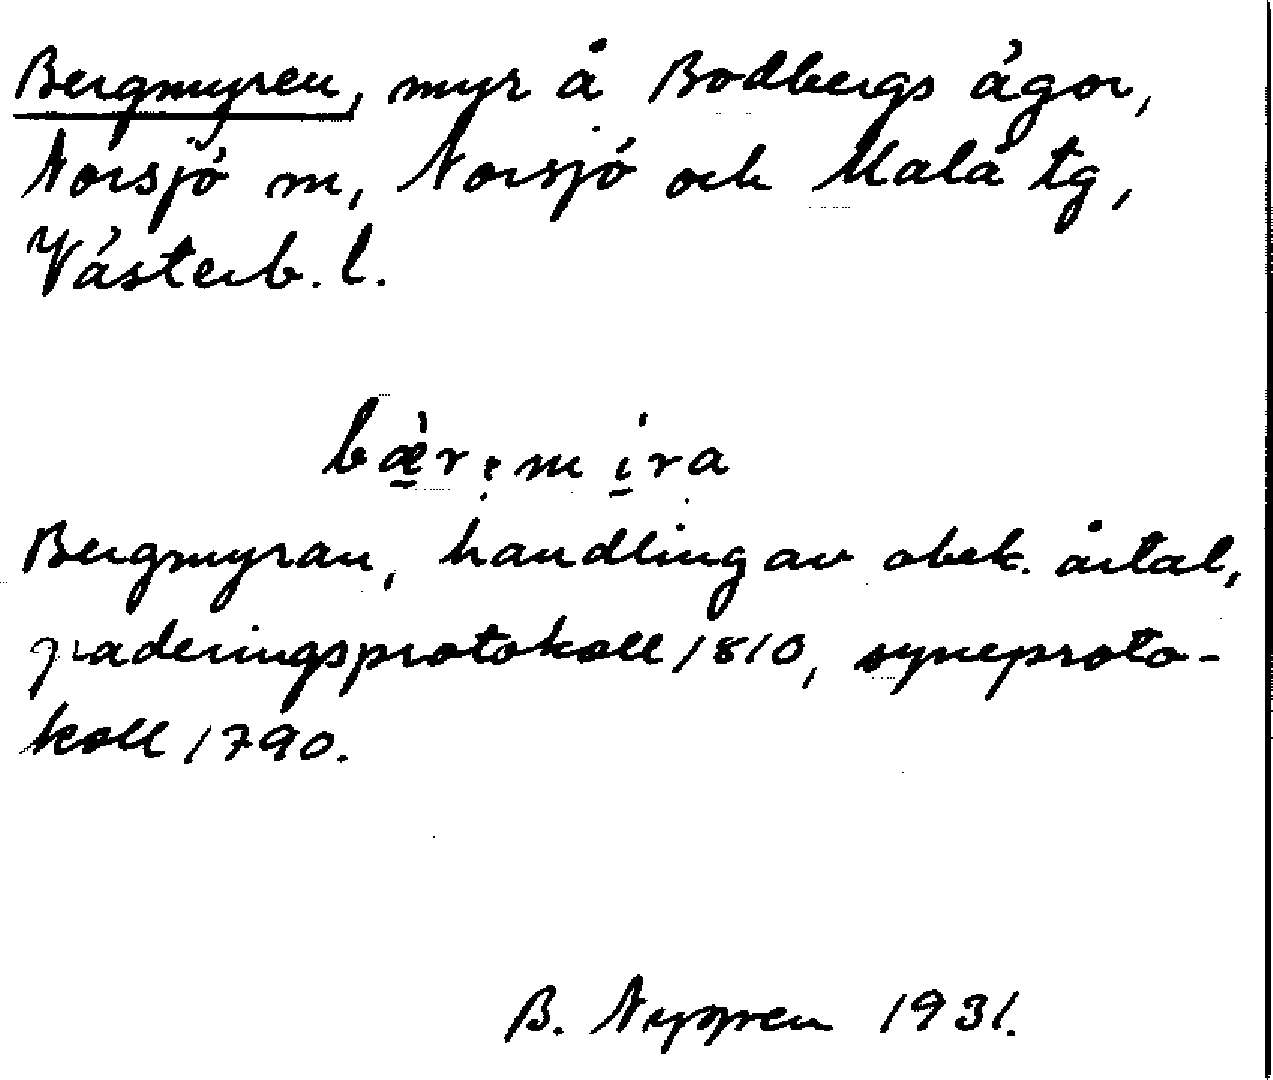 Bergmyren, myr å Bodbergs ägor,
Norsjö sn, Norsjö och Malå tg,
Västerb. l.
bæ̀r:míra
Bergmyran, handling av obek. årtal,
graderingsprotokoll 1810, syneproto-
koll 1790.
B. Nygren 1931.